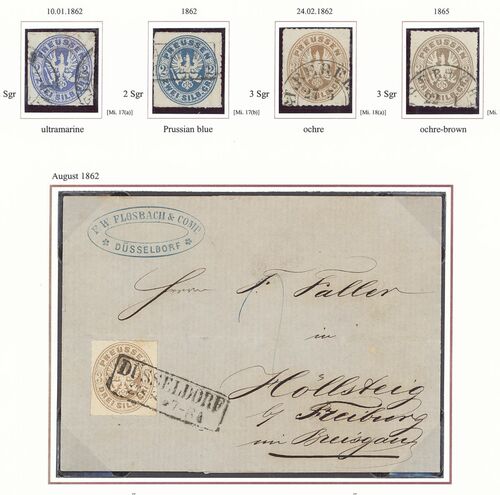 10.01.1862
1862
24.02.1862
1865
PREUSSEN
ZWEI SILBERGR
PREUSSEN
ZWEI SILBERGR
PREUSSEN
DREI SILBERGR
PREUSSEN
DREI SILBERGR
Sgr
2 Sgr
3 Sgr
3 Sgr
[Mi. 17(a)]
[Mi. 17(b)]
[Mi. 18(a)]
[Mi.
ultramarine
Prussian blue
ochre
ochre-brown
August 1862
F. W. FLOSBACH & COMP.
DÜSSELDORF
Herrn F. Faller
in
Höllsteig
b/ Freiburg
im Breisgau
PREUSSEN
DREI SILBERGR
DÜSSELDORF